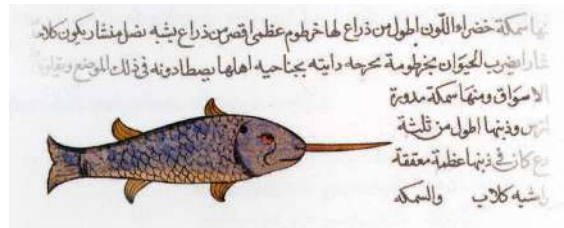 سمكة خضراء اللون اطول من ذراع لها خرطوم عظمى اقصر من ذراع يشبه نصل منشار يكون
يضرب الحيوان بخرطومة دابته بجناحيه اهلها يصطادونه فى ذلك الموضع
الاسواق ومنها سمكة مدورة
وذنبها اطول من ثلثة
كان فى ذنبها عظمة معقفة
كلاب والسمكه